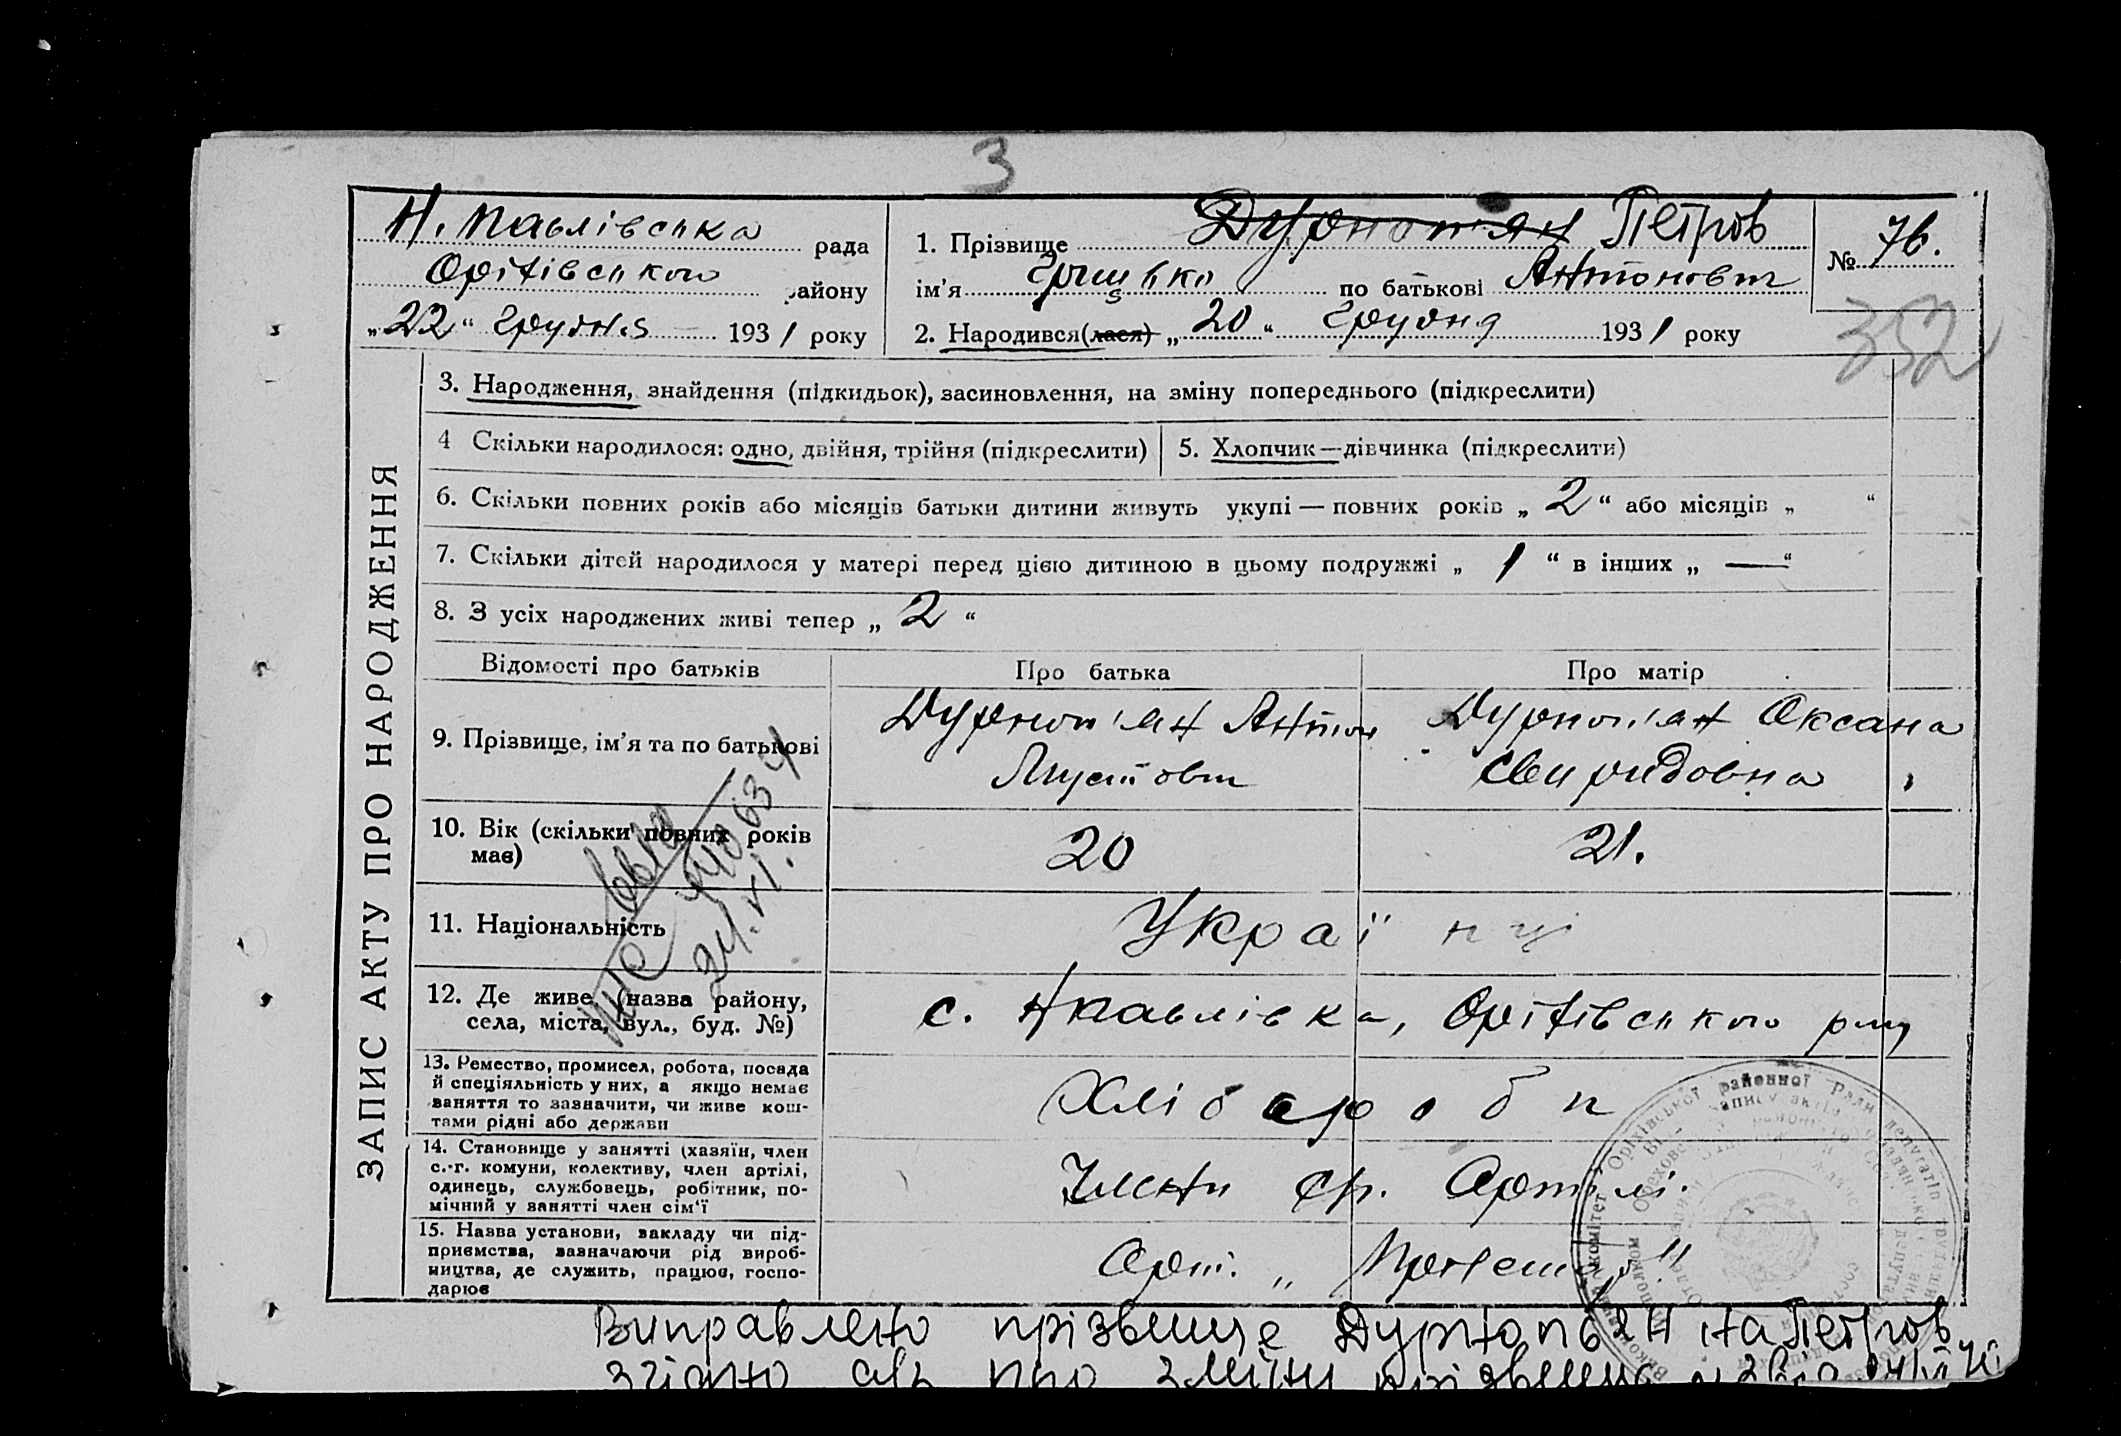 3
Н. Павлівська рада
Оріхівського району
„22“ грудня 1931 року
1. Прізвище Дурноп'ян Петров
ім'я Грицько по батькові Антонович
2. Народився(лася) „20“ грудня 1931 року
№ 76.
352
ЗАПИС АКТУ ПРО НАРОДЖЕННЯ
3. Народження, знайдення (підкидьок), засиновлення, на зміну попереднього (підкреслити)
4 Скільки народилося: одно, двійня, трійня (підкреслити)
5. Хлопчик—дівчинка (підкреслити)
6. Скільки повних років або місяців батьки дитини живуть укупі — повних років „2“ або місяців „ “
7. Скільки дітей народилося у матері перед цією дитиною в цьому подружжі „1“ в інших „—“
8. З усіх народжених живі тепер „2“
Відомості про батьків Про батька Про матір
9. Прізвище, ім'я та по батькові
Дурноп'ян Антон
Дурноп'ян Оксана
Свиридовна
10. Вік (скільки повних років
має)
20 21.
11. Національність
Українці
12. Де живе (назва району,
села, міста, вул., буд. №)
с. Н Павлівка, Оріхівського р-ну
13. Ремество, промисел, робота, посада
й спеціяльність у них, а якщо немає
заняття то зазначити, чи живе кош-
тами рідні або держави
Хлібороби
14. Становище у занятті (хазяїн, член
с.-г. комуни, колективу, член артілі,
одинець, службовець, робітник, по-
мічний у занятті член сім'ї
Члени с.г. Артілі.
15. Назва установи, закладу чи під-
приємства, зазначаючи рід вироб-
ництва, де служить, працює, госпо-
дарює
Арт.
Виправлено прізвище Дурнопьян на Петров
згідно про зміну прізвища